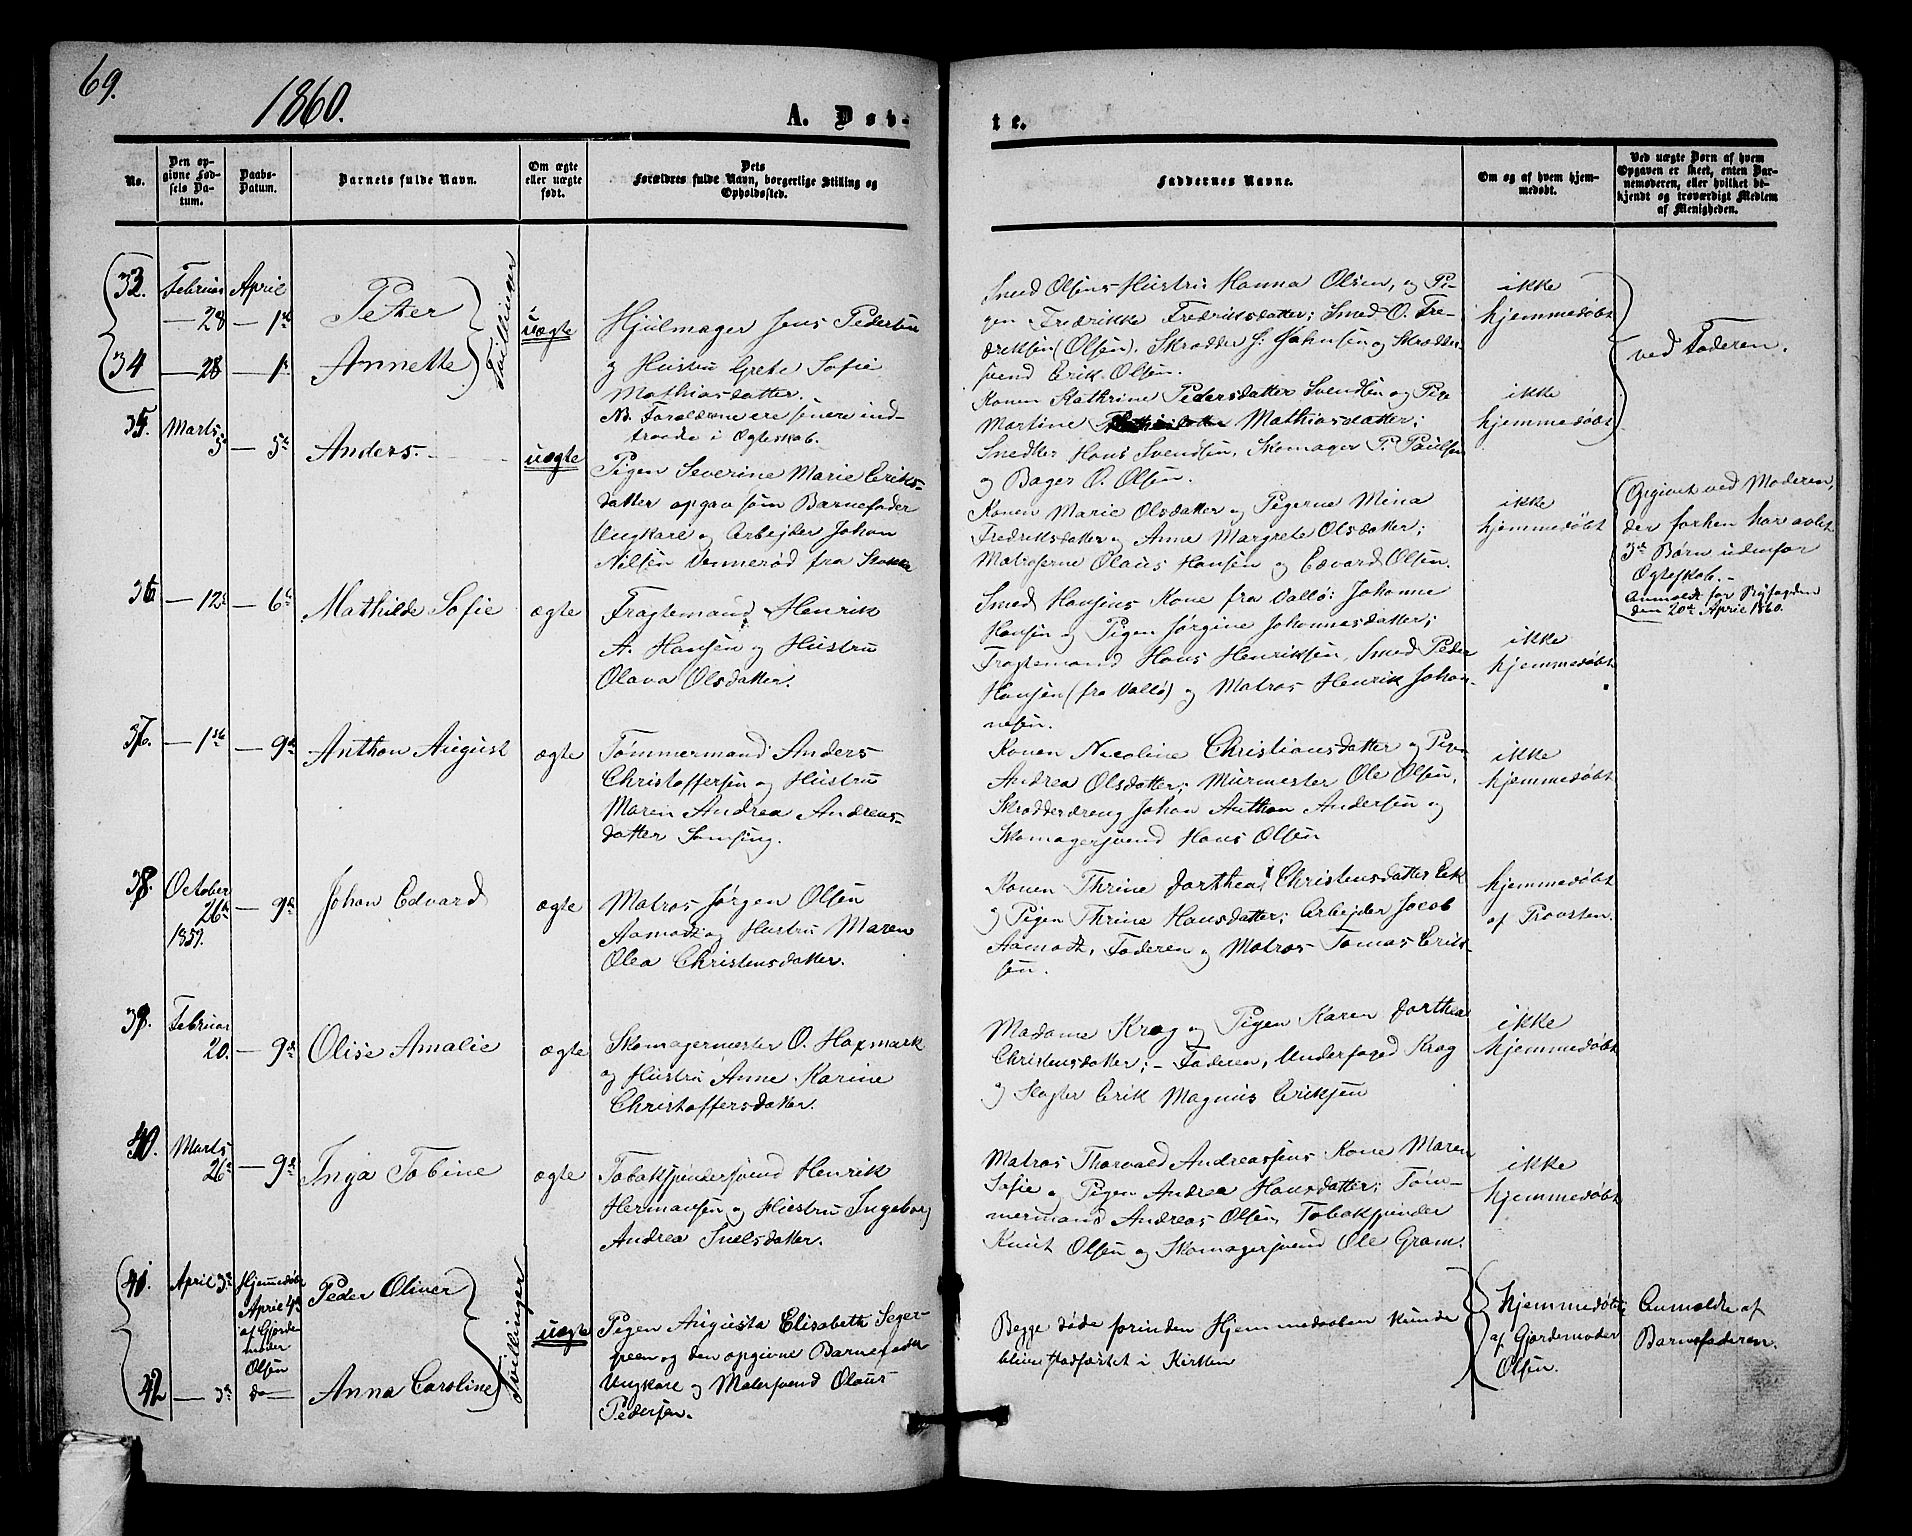 69.
1860.
A. Døb-
te.
No.
Den op-
givne Fød-
sels Da-
tum.
Daabs-
Datum.
Barnets fulde Navn.
Om ægte
eller uægte
født.
Dets
Forældres fulde Navn, borgerlige Stilling og
Opholdssted.
Faddernes Navne.
Om og af hvem hjem-
medøbt.
Ved uægte Børn af hvem
Opgaven er skeet, enten Bar-
nemoderen, eller hvilket be-
kjendt og troværdigt Medlem
af Menigheden.
33. Februar April
28 1st Peter
34 28 1st Annette
Tvillinger
uægte
Hjulmager Jens Pedersen
og Hustru Grete Sofie
Mathiasdatter.
NB. Forældrene ere senere ind-
traadte i Ægteskab.
Smed Olsens Hustru Hanna Olsen, og Pi-
gen Fredrikke Fredriksdatter; Smed O. Fre-
driksen (Olsen), Skrædder H. Johnsen og Skrædder-
svend Erik Olsen.
Konen Kathrine Pedersdatter Svendsen og Pige
Martine Mathiasdatter;
Snedker Hans Svendsen, Skomager P. Paulsen
og Bager O. Olsen.
ikke
hjemmedøbt
ikke
hjemmedøbt
ved Faderen.
35. Marts
5 5te Anders
uægte
Pigen Severine Marie Eriks-
datter opgav som Barnefader
Ungkarl og Arbejder Johan
Nilsen Vennerød fra Stokke
Konen Marie Olsdatter og Pigerne Mina
Fredriksdatter og Anne Margrete Olsdatter;
Matroserne Olaus Hansen og Edvard Olsen.
ikke
hjemmedøbt
Opgivet ved Moderen,
der forhen har avlet
3de Børn udenfor
Ægteskab.-
Anmeldt for Fogden
den 20de April 1860.
36 12te 6te Mathilde Sofie
ægte
Fragtemand Henrik
A. Hansen og Hustru
Olava Olsdatter.
Smed Hansens Kone fra Vallø: Johanne
Hansen og Pigen Jørgine Johannesdatter;
Fragtemand Hans Henriksen, Smed Peder
Hansen (fra Vallø) og Matros Henrik Johan-
nesen.
ikke
hjemmedøbt
37. 1ste 9de Anthon August
ægte
Tømmermand Anders
Christoffersen og Hustru
Maren Andrea Andreas-
datter Samsing.
Konen Nicoline Christiansdatter og Pigen
Andrea Olsdatter; Murmester Ole Olsen,
Skrædderdreng Johan Anthon Andersen og
Skomagersvend Hans Olsen
ikke
hjemmedøbt
38. October
26de
1859. 9de Johan Edvard
ægte
Matros Jørgen Olsen
Aamodt og Hustru Maren
Olea Christensdatter.
Konen Thrine Dorthea Christensdatter Eek
og Pigen Thrine Hansdatter; Arbejder Jacob
Aamodt, Faderen og Matros Tomas Erik-
sen.
hjemmedøbt
af Provsten.
39. Februar
20. 9de Olise Amalie
ægte
Skomagermester O. Haxmark
og Hustru Anne Karine
Christoffersdatter.
Madame Krag og Pigen Karen Dorthea
Christensdatter; - Faderen, Underfoged Krag
og Slagter Erik Magnus Eriksen
ikke
hjemmedøbt
40. Marts
26de 9de Inga Tobine
ægte
Tobakspindersvend Henrik
Hermansen og Hustru Ingeborg
Andrea Snelsdatter.
Matros Thorvald Andreassens Kone Maren
Sofie og Pigen Andrea Hansdatter; Tøm-
mermand Andreas Olsen, Tobakspinder
Knut Olsen og Skomagersvend Ole Gram.
ikke
hjemmedøbt
41. April 3de Hjemmedøbt
April 4de
af Gjorde-
moder
Olsen
Peder Oliver
42 3de do Anna Caroline
Tvillinger
uægte
Pigen Augusta Elisabeth Seger-
green og den opgivne Barnefader
Ungkarl og Malersvend Olaus
Pedersen.
Begge døde forinden Hjemmedaaben kunde
blive stadfæstet i Kirken
hjemmedøbt
af Gjordemoder
Olsen.
Anmeldt af
Barnefaderen.